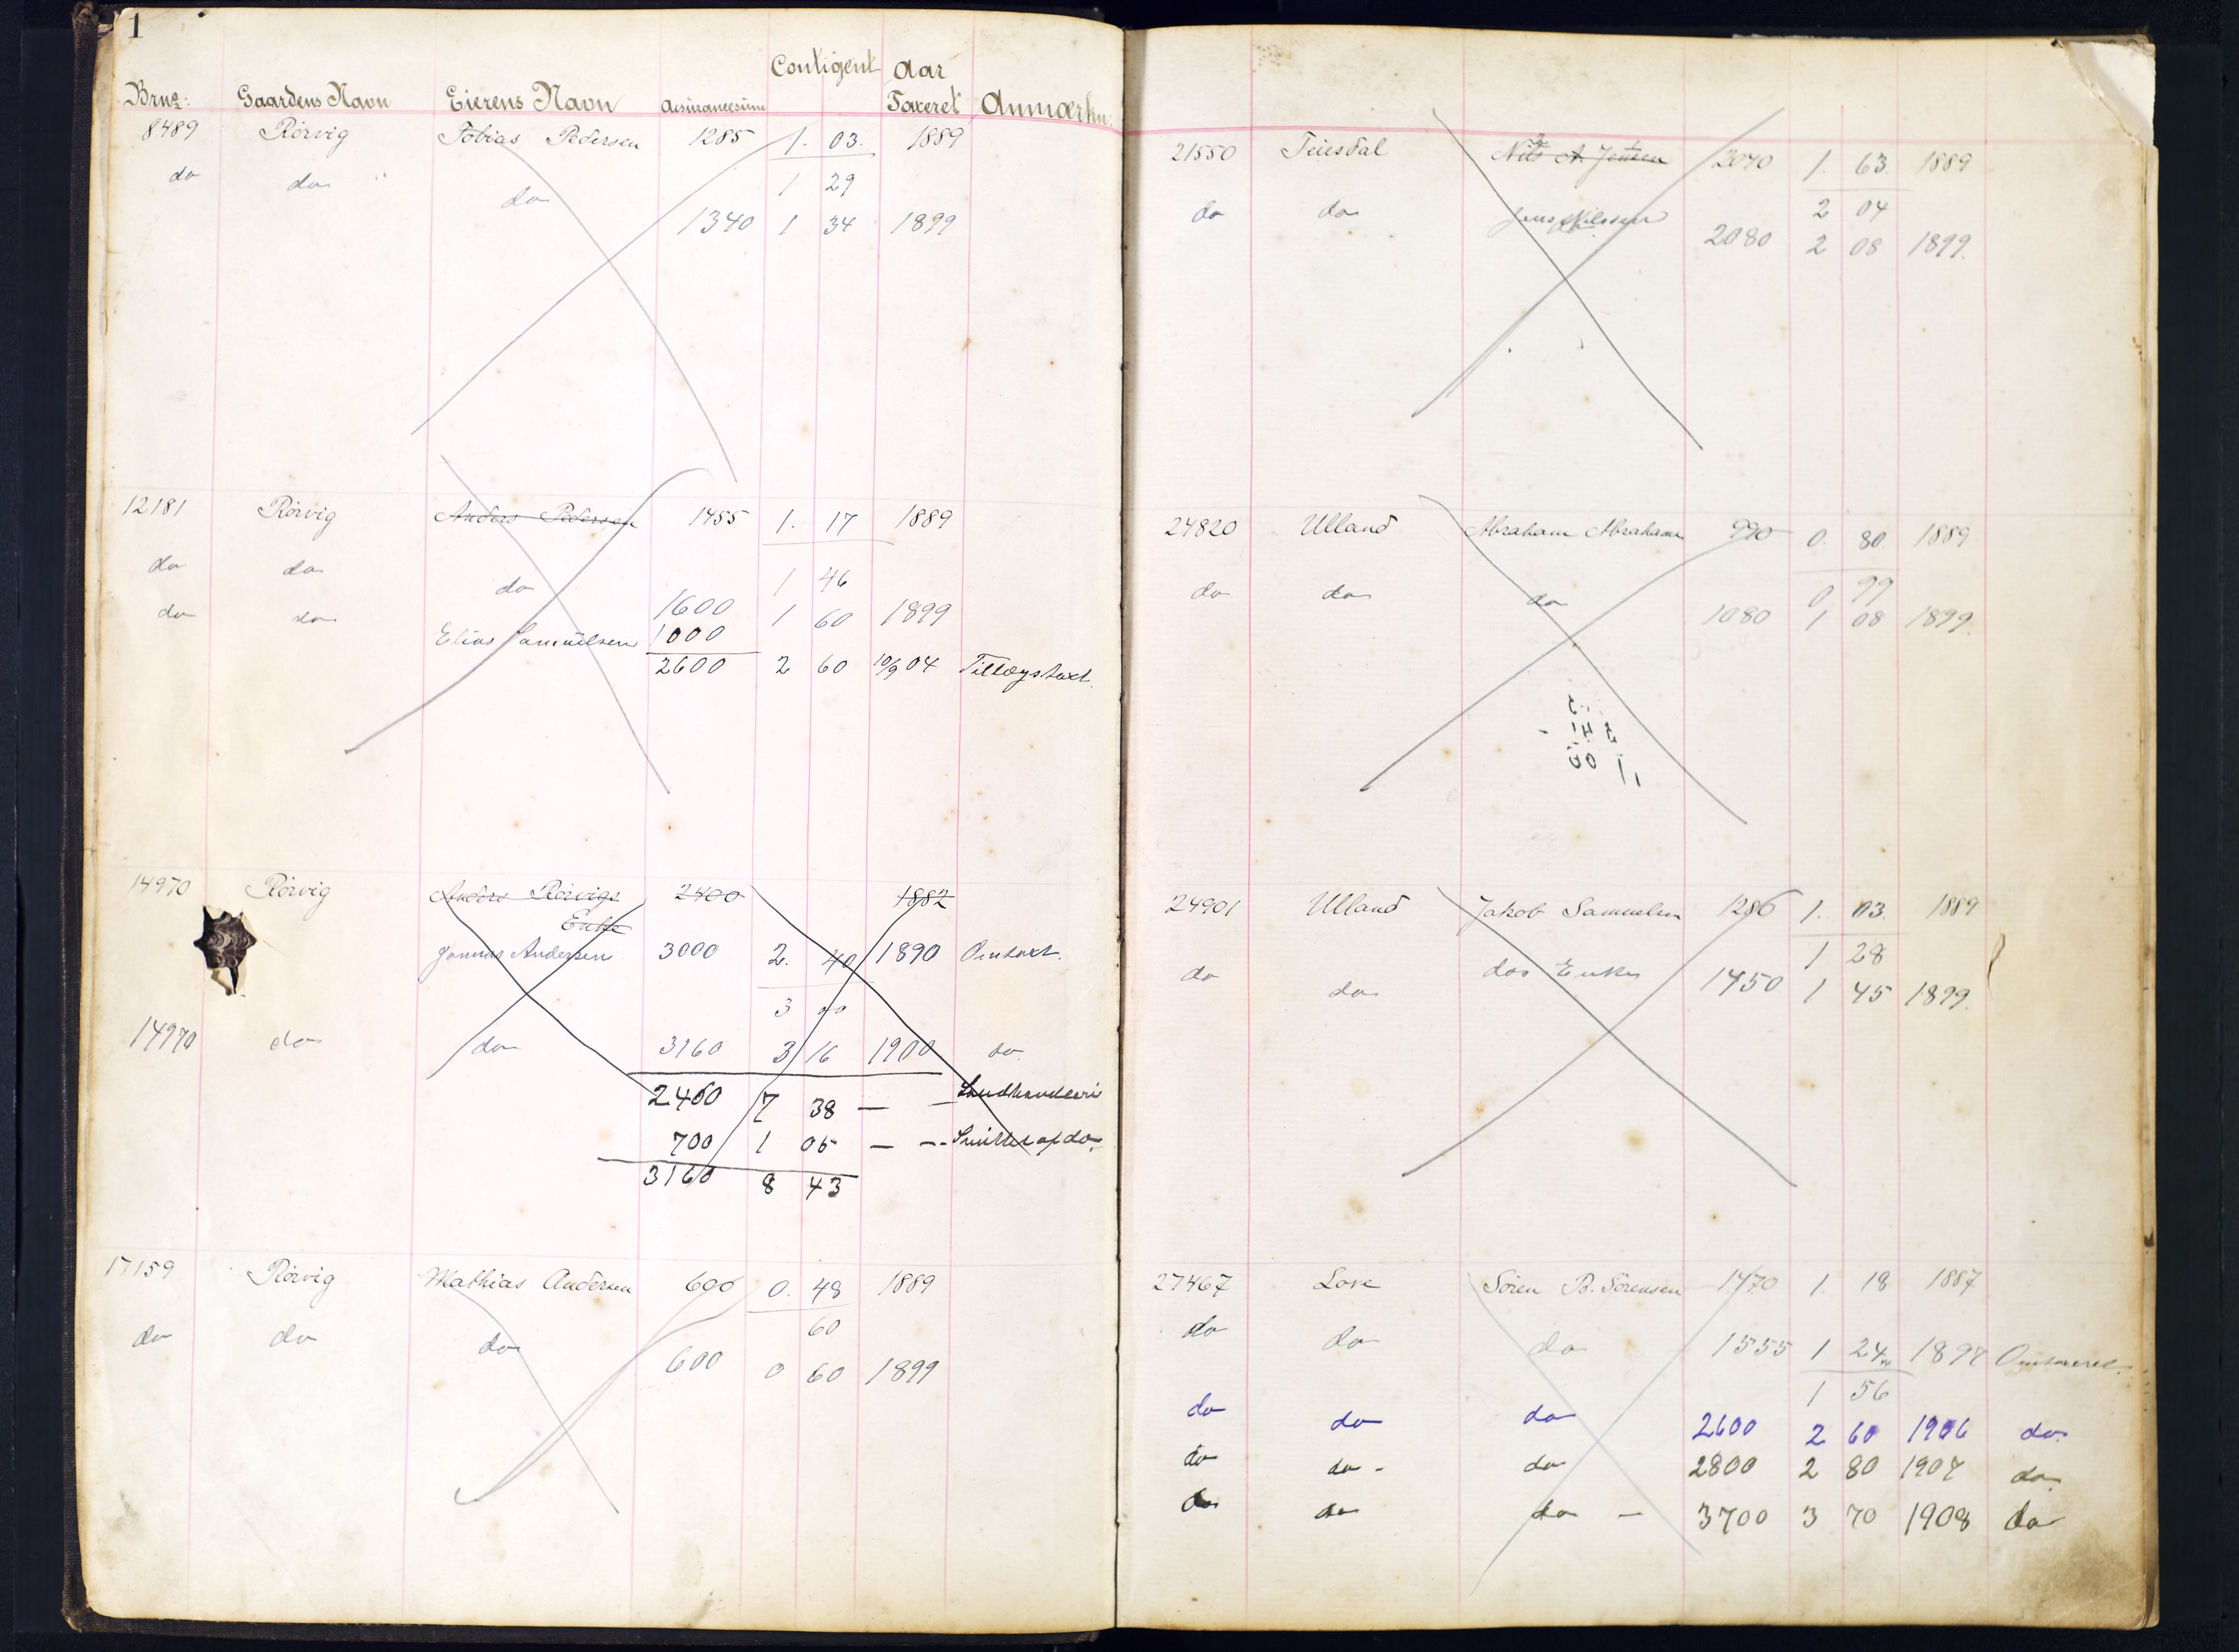 1
Contigent Aar
Brno: Gaardens Navn Eierens Navn Assurancesum Taxeret Anmærkn:
8489 Rörvig Tobias Pedersen 1285 1. 03. 1889
do do " do 1 29
1340 1 34 1899
12181 Rörvig Anders Pedersen 1455 1. 17 1889
do do do 1 46
1600 1 60 1899
do do Elias Samuelsen 1000
2600 2 60 10/9 04 Tillægstaxt.
14970 Rörvig Anders Rörvigs 2400 1882
Enke
Jonnas Andersen 3000 2. 40 1890 Omtaxt.
3 00
14970 do do 3160 3 16 1900 do.
2460 7 38 — — Landhandleri
700 1 05 — — Smitte af do.
3160 8 43
17159 Rörvig Mathias Andersen 600 0. 48 1889
60
do do do 600 0 60 1899
21550 Teiesdal Nils A. Jensen 2040 1. 63. 1889
2 04
do do Jens Nilssen 2080 2 08 1899.
24820 Ulland Abraham Abrahams 990 0. 80. 1889
0 99
do do do 1080 1 08 1899.
24901 Ulland Jakob Samuelsen 1286 1. 03. 1889
1 28
do do dos Enke 1450 1 45 1899.
27467 Lone Sören B. Sörensen 1470 1. 18 1887
do do do 1555 1 24 1897 Omtaxeret.
1 56
do do do 2600 2 60 1906 do.
do do - do 2800 2 80 1907 do.
do do do — 3700 3 70 1908 do